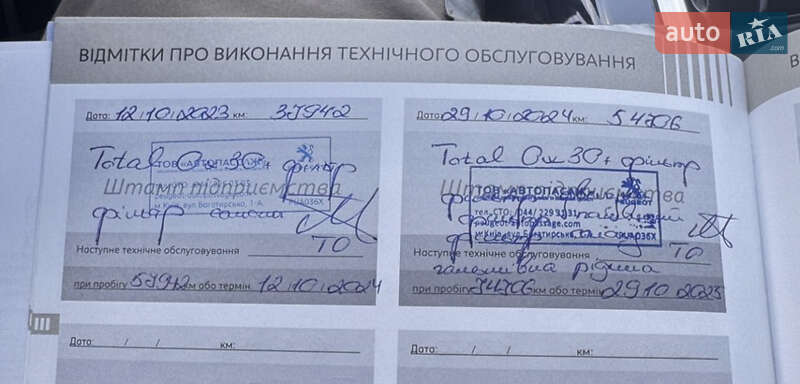 auto RIA .com
ВІДМІТКИ ПРО ВИКОНАННЯ ТЕХНІЧНОГО ОБСЛУГОВУВАННЯ
Дата: 12/10/2023 км: 37942
Total 0w30+ фільтр
ТОВ «АВТОПАСАЖ»
Штамп підприємства
м.Київ, вул. Богатирська, 1-А
UA036X
фільтр салону
Наступне технічне обслуговування ТО
при пробігу 57942 км або термін 12/10/2024
Дата: 29/10/2024 км: 54706
Total 0w30+ фільтр
ТОВ «АВТОПАСАЖ»
Штамп підприємства
PEUGEOT
тел. СТО: (044) 229 31 31
peugeot-autopassage.com
UA036X
Наступне технічне обслуговування ТО
гальмівна рідина
при пробігу 74706 км або термін 29 10 2025
Дата: / / км:
Дата: / / км: